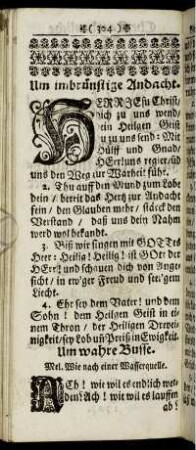 ( 304 )
Um imbrünstige Andacht.
HERR JEsu Christ/
dich zu uns wend/
dein Heiligen Geist
du zu uns send: Mit
Hülff und Gnad/
HErr! uns regier/ üd
uns den Weg zur Warheit führ.
2. Thu auff den Mund zum Lobe
dein / bereit das Hertz zur Andacht
fein / den Glauben mehr / stärck den
Verstand / daß uns dein Nahm
werd wol bekandt.
3. Biß wir singen mit GOTTes
Heer: Heilig! Heilig! ist GOtt der
HErr! und schauen dich von Ange-
sicht / in ew'ger Freud und sel'gem
Liecht.
4. Ehr sey dem Vater! und dem
Sohn! dem Heiligen Geist in ei-
nem Thron / der Heiligen Dreyei-
nigkeit/ sey Lob uñ Preiß in Ewigkeit.
Um wahre Busse.
Mel. Wie nach einer Wasserquelle.
ACh! wie wil es endlich wer-
den! Ach! wie wil es lauffen
ab!